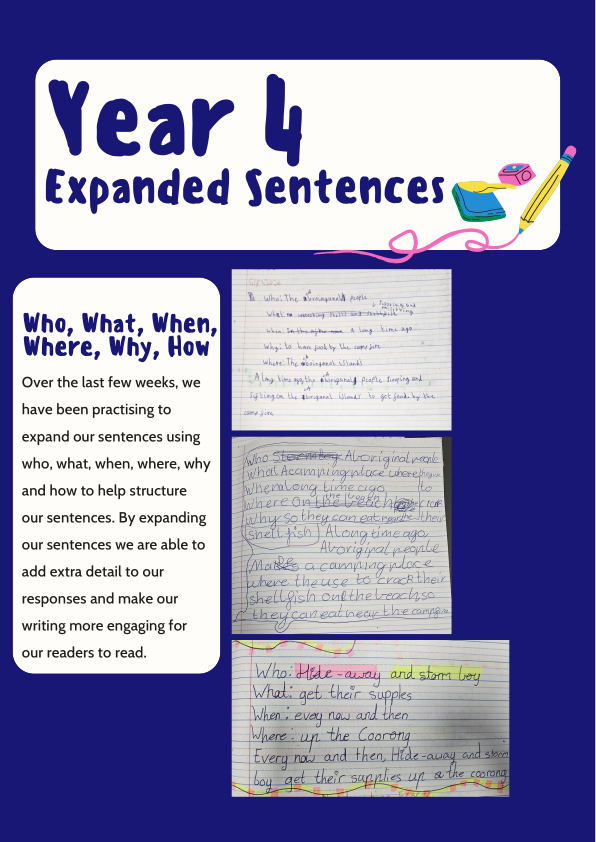 Year 4
Expanded Sentences
Who, What, When,
Where, Why, How
Over the last few weeks, we
have been practising to
expand our sentences using
who, what, when, where, why
and how to help structure
our sentences. By expanding
our sentences we are able to
add extra detail to our
responses and make our
writing more engaging for
our readers to read.
Who: The people
What:
When: a long time ago
Why: to have food by the camp fire
Where: The islands
A long time ago the people and
on the islands to get food by the
camp fire
Who Aboriginal people
What A camping place where
When along time ago to
where On the beach
why so they can eat near their
shell fish Along time ago
Aboriginal people
Made a camping place
where the use to crack their
shellfish on the beach so
they can eat near the campfire
Who: Hide-away and storm boy
What: get their supples
When: every now and then
Where: up the Coorong
Every now and then, Hide-away and storm
boy get their supplies up the coorong